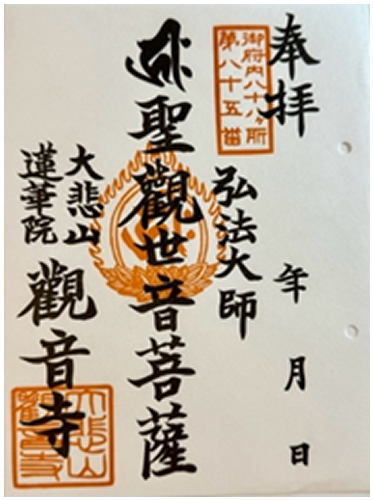 奉拝
年 月 日
御府内八十八ヶ所
第八十五番
弘法大師
聖觀世音菩薩
大悲山
蓮華院
觀音寺
大悲山
觀音寺